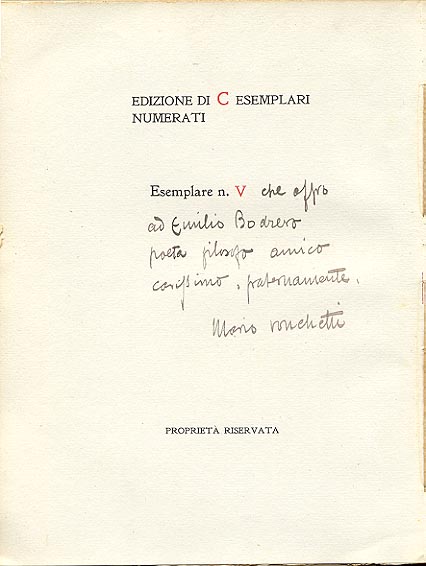 EDIZIONE DI C ESEMPLARI
NUMERATI
Esemplare n. V che offro
ad Emilio Bodrero
poeta filosofo amico
carissimo, fraternamente.
Mario ronchetti
PROPRIETÀ RISERVATA